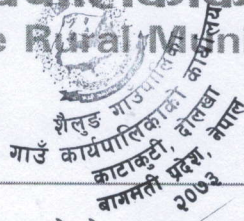 e Rural Mun
शैलुङ गाउँपालिका
गाउँ कार्यपालिकाको कार्यालय
काटाकुटी, दोलखा
बागमती प्रदेश, नेपाल
२०७३